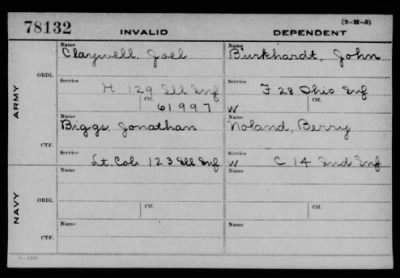 78132 INVALID DEPENDENT (3-M-3)
Name Claywell, Joel Name Burkhardt, John
ORIG.
Service H 129 Ill Inf Service F 28 Ohio Inf
ARMY
Ctf. 61997 W Ctf.
Name Biggs, Jonathan Name Noland, Berry
CTF.
Service Lt. Col. 123 Ill Inf Service W C 14 Ind Inf
Name Name
ORIG.
Service Ctf. Service Ctf.
NAVY
Name Name
CTF.
Service Service